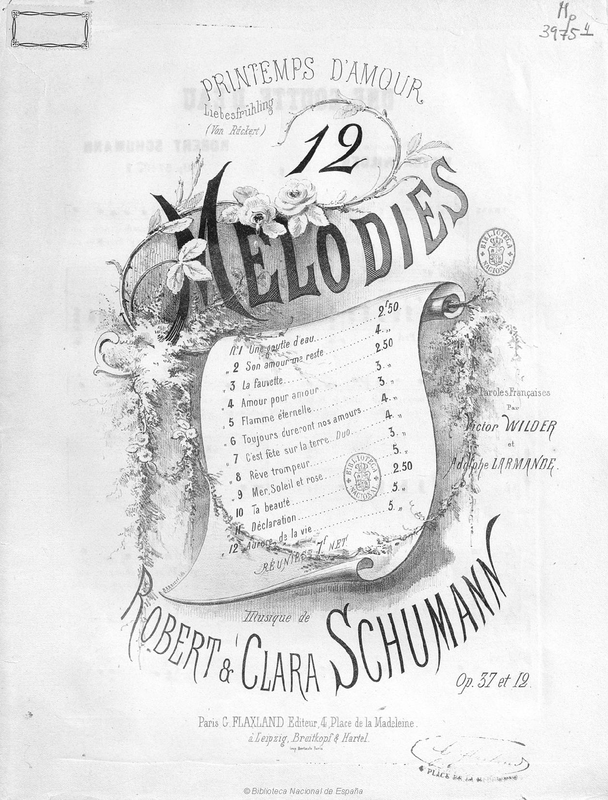 Mp
3975 4
PRINTEMPS D'AMOUR
Liebesfrühling
(Von Rückert)
12
MELODIES
BIBLIOTECA NACIONAL
N.º1 Une goutte d'eau 2f50
" 2 Son amour me reste 4 "
" 3 La fauvette 2.50
" 4 Amour pour amour 3 "
" 5 Flamme éternelle 3 "
" 6 Toujours dureront nos amours 4 "
" 7 C'est fête sur la terre. Duo 4 "
" 8 Rêve trompeur 3 "
" 9 Mer, Soleil et rose 5 "
" 10 Ta beauté 2.50
" 11 Déclaration 5 "
" 12 Aurore de la vie 5 "
RÉUNIES 7f NET
BIBLIOTECA NACIONAL
Paroles Françaises
Par
Victor WILDER
et
Adolphe LARMANDE.
Musique de
ROBERT & CLARA SCHUMANN
Op. 37 et 12.
Paris G. FLAXLAND Editeur, 4, Place de la Madeleine.
à Leipzig, Breitkopf & Hartel.
4 PLACE DE LA
© Biblioteca Nacional de España